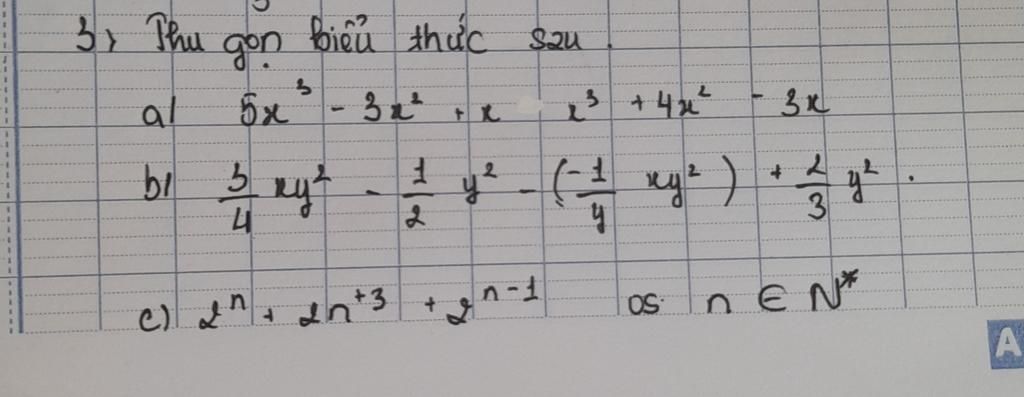 3) Thu gọn biểu thức sau.
a) 5x³ - 3x² + x x³ + 4x² - 3x
b) 3/4 xy² - 1/2 y² - (-1/4 xy²) + 2/3 y².
c) 2ⁿ + 2n⁺³ + 2ⁿ⁻¹ n ∈ N*
A